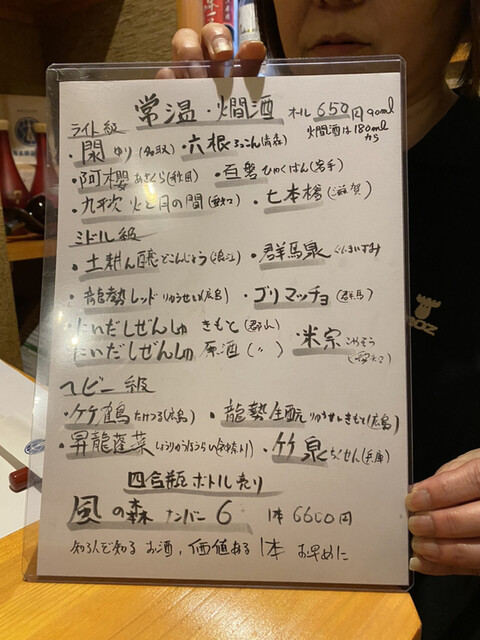 常温・燗酒 オール650円90ml
ライト級 燗酒は180mlから
・閖 ゆり(名取) ・六根 ろっこん(青森)
・阿櫻 あざくら(秋田) ・百磐 ひゃくばん(岩手)
・九平次 火と月の間(愛知) ・七本槍(滋賀)
ミドル級
・土耕ん醸 どこんじょう(浪江) ・群馬泉 ぐんまいずみ
・龍勢レッド りゅうせい(広島) ・ゴリマッチョ(群馬)
・にいだしぜんしゅ きもと(郡山) ・米宗 こめそう
にいだしぜんしゅ 原酒(〃) (愛知)
ヘビー級
・竹鶴 たけつる(広島) ・龍勢 生酛 りゅうせいきもと(広島)
・昇龍蓬莱 しょうりゅうほうらい(神奈川) ・竹泉 ちくせん(兵庫)
四合瓶ボトル売り
風の森 ナンバー6 1本 6600円
知る人ぞ知る お酒、価値ある1本 お早めに